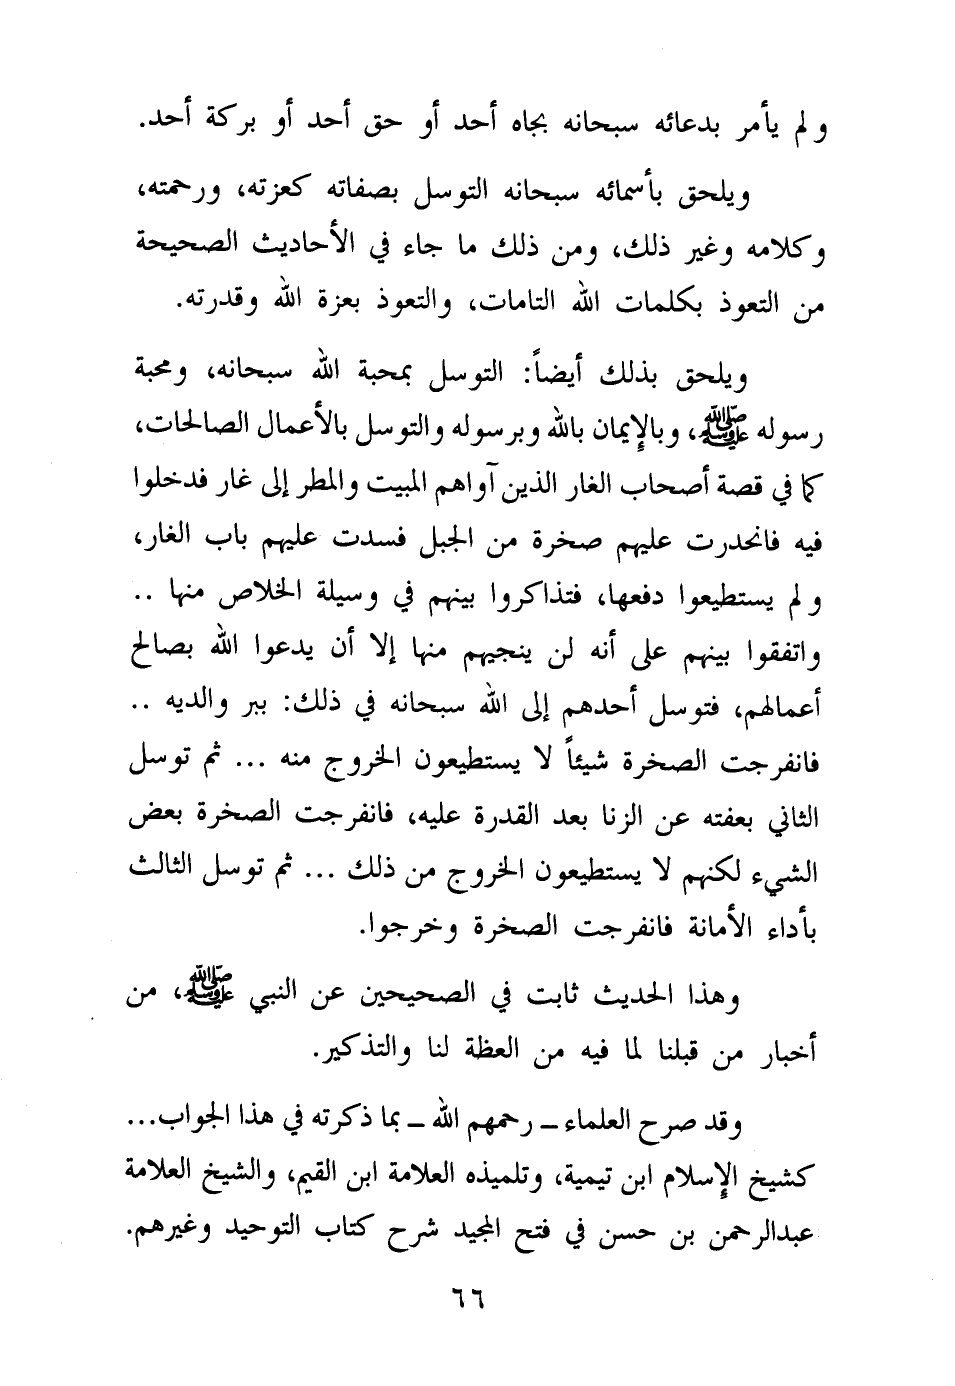 ولم يأمر بدعائه سبحانه بجاه أحد أو حق أحد أو بركة أحد.
ويلحق بأسمائه سبحانه التوسل بصفاته كعزته، ورحمته،
وكلامه وغير ذلك، ومن ذلك ما جاء في الأحاديث الصحيحة
من التعوذ بكلمات الله التامات، والتعوذ بعزة الله وقدرته.
ويلحق بذلك أيضاً: التوسل بمحبة الله سبحانه، ومحبة
رسوله ﷺ، وبالإيمان بالله وبرسوله والتوسل بالأعمال الصالحات،
كما في قصة أصحاب الغار الذين آواهم المبيت والمطر إلى غار فدخلوا
فيه فانحدرت عليهم صخرة من الجبل فسدت عليهم باب الغار،
ولم يستطيعوا دفعها، فتذاكروا بينهم في وسيلة الخلاص منها ..
واتفقوا بينهم على أنه لن ينجيهم منها إلا أن يدعوا الله بصالح
أعمالهم، فتوسل أحدهم إلى الله سبحانه في ذلك: ببر والديه ..
فانفرجت الصخرة شيئاً لا يستطيعون الخروج منه ... ثم توسل
الثاني بعفته عن الزنا بعد القدرة عليه، فانفرجت الصخرة بعض
الشيء لكنهم لا يستطيعون الخروج من ذلك ... ثم توسل الثالث
بأداء الأمانة فانفرجت الصخرة وخرجوا.
وهذا الحديث ثابت في الصحيحين عن النبي ﷺ، من
أخبار من قبلنا لما فيه من العظة لنا والتذكير.
وقد صرح العلماء ـ رحمهم الله ـ بما ذكرته في هذا الجواب...
كشيخ الإسلام ابن تيمية، وتلميذه العلامة ابن القيم، والشيخ العلامة
عبدالرحمن بن حسن في فتح المجيد شرح كتاب التوحيد وغيرهم.
٦٦